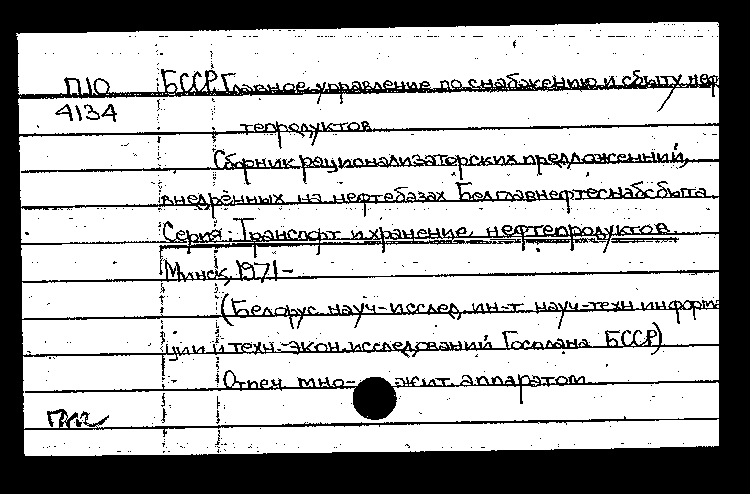 П10 БССР. Главное управление по снабжению и сбыту неф
4134
тепродуктов.
Сборник рационализаторских предложений,
внедрённых на нефтебазах Белглавнефтеснабсбыта.
Серия: Транспорт и хранение нефтепродуктов.
Минск, 1971-
(Белорус. науч-исслед. ин-т науч-техн. информа
ции и техн.-экон. исследований Госплана БССР)
Отпеч. мно- жит. аппаратом